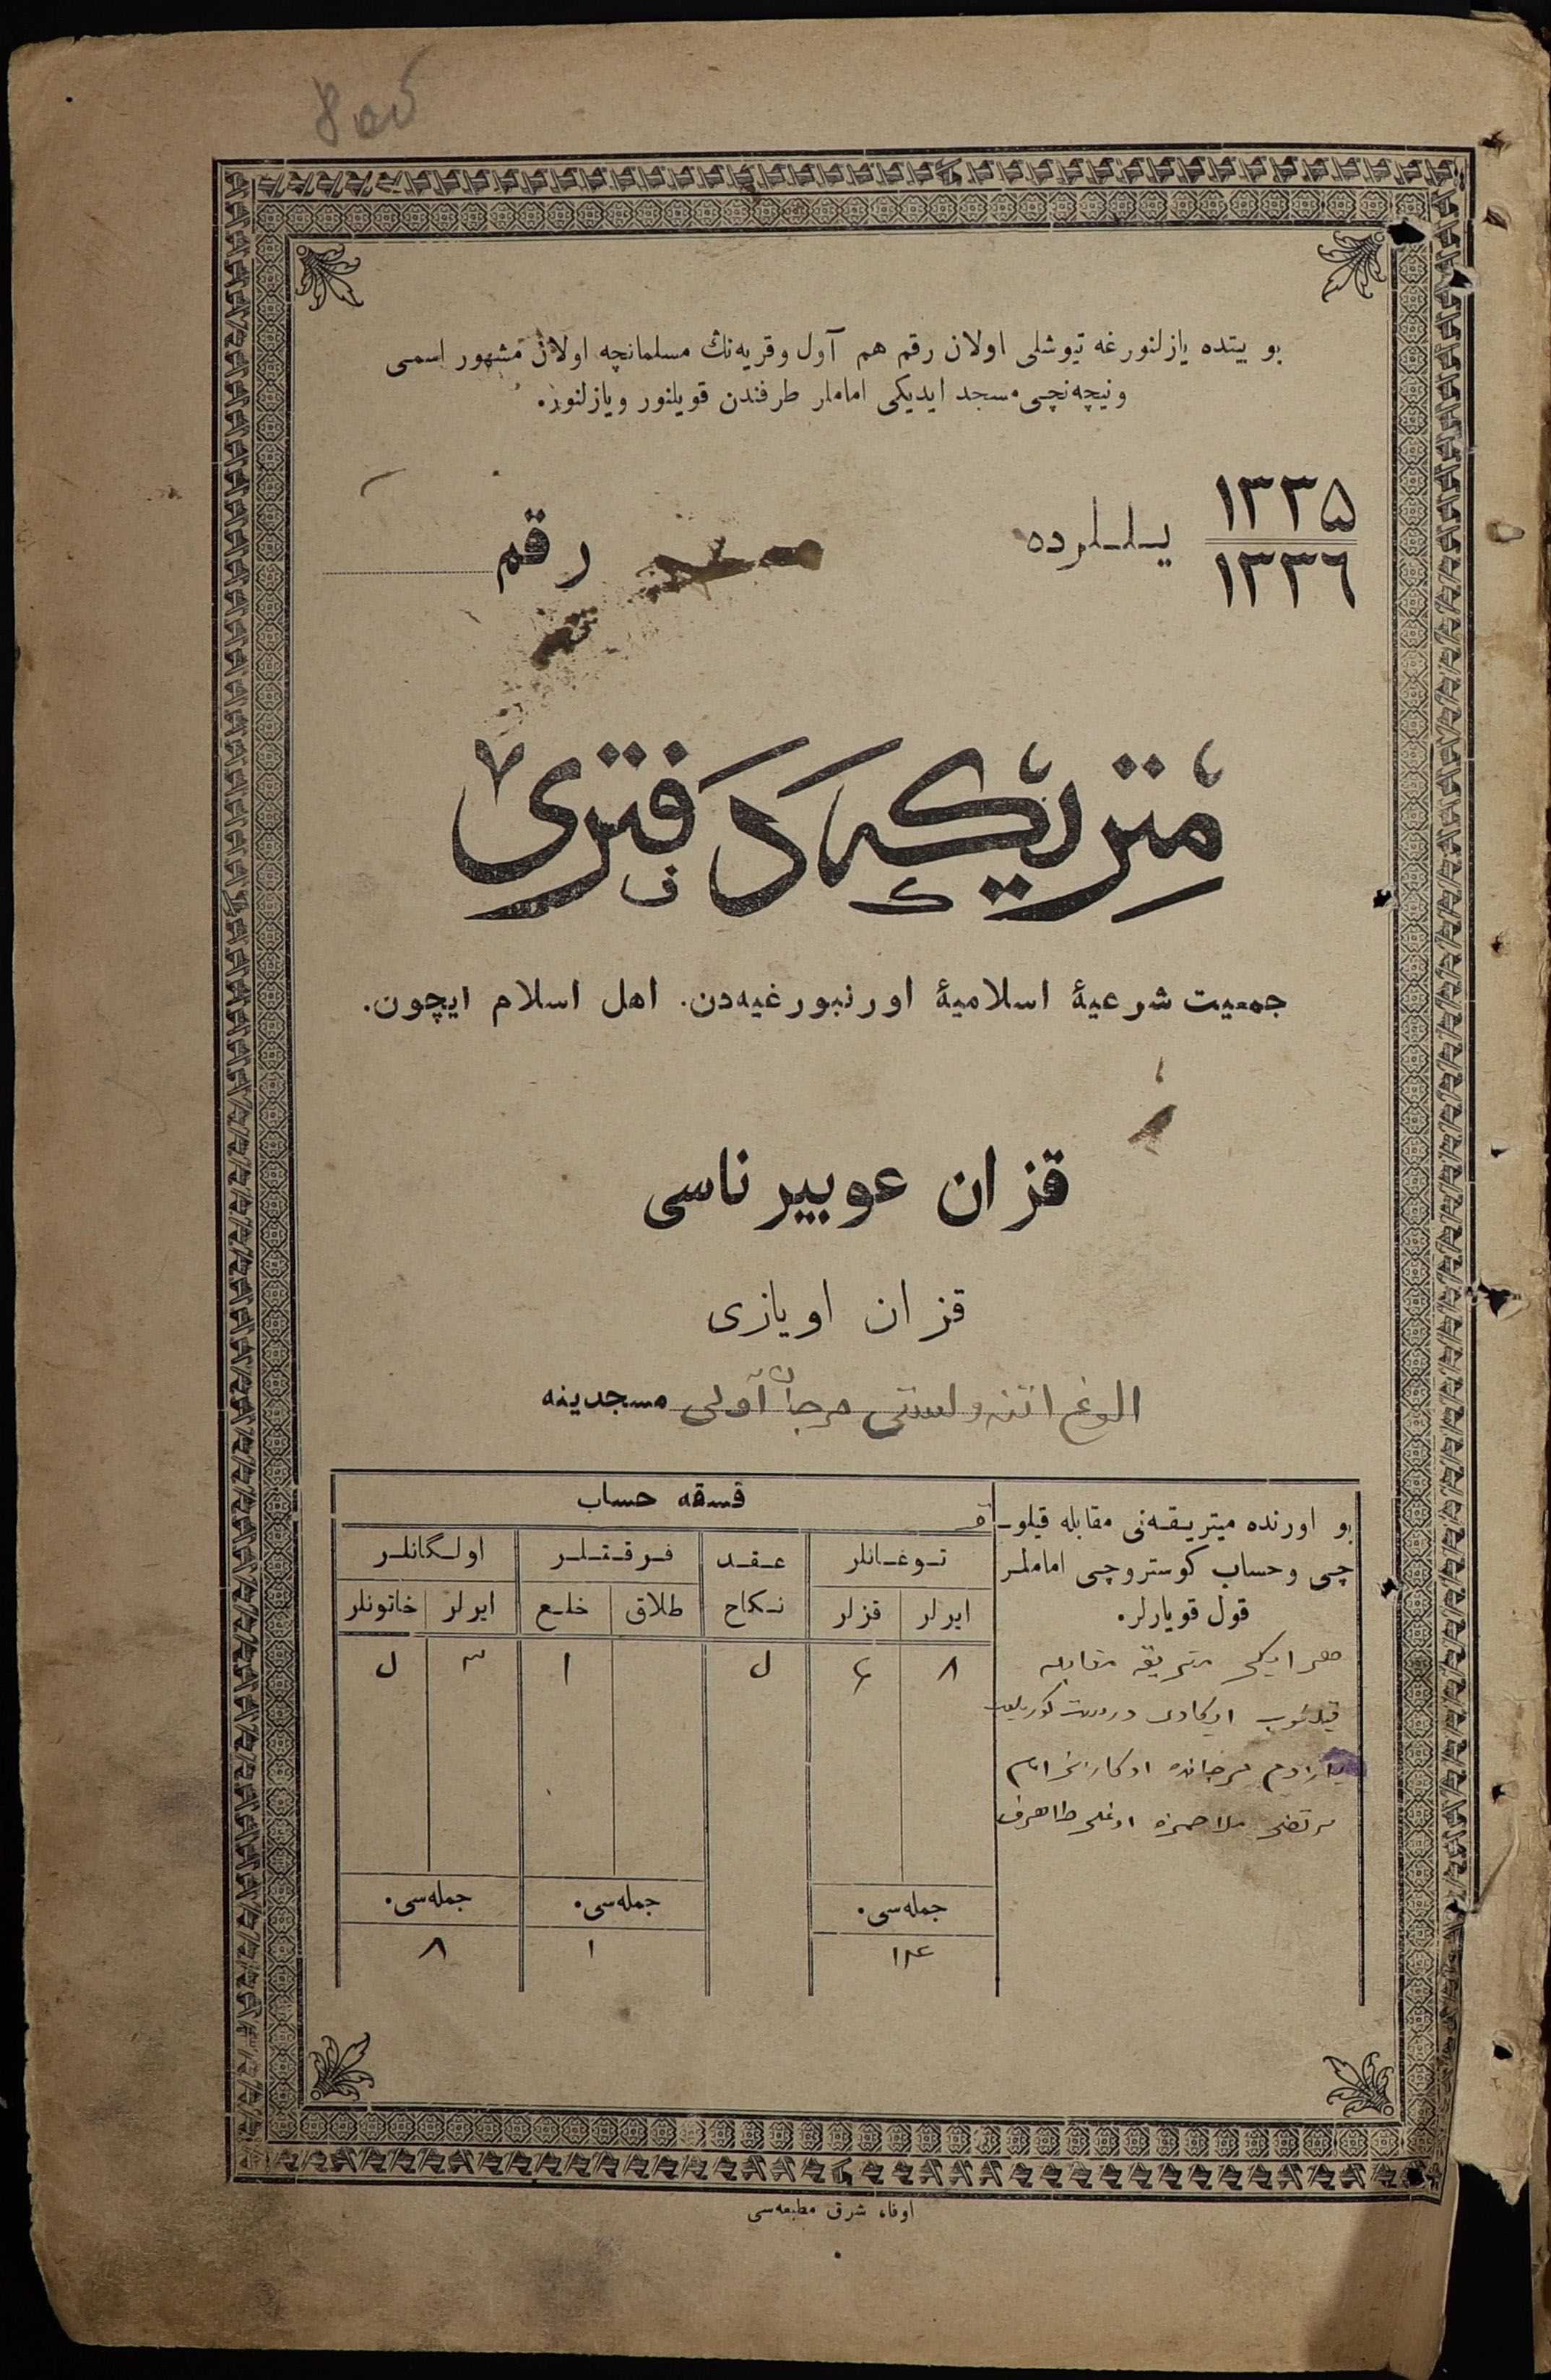 بو بیتده یازلنورغه تیوشلی اولان رقم هم آول وقریه‌نڭ مسلمانچه اولان مشهور اسمی
ونیچه‌نچی مسجد ایدیکی اماملر طرفندن قویلنور ویازلنور.
۱۳۳۵
۱۳۳٦
یللرده
رقم
مِتریکه دَفتری
جمعیت شرعیهٔ اسلامیهٔ اورنبورغیه‌دن. اهل اسلام ایچون.
قزان غوبیرناسی
قزان اویازی
الوغ اتنه ولستی مرجان آولی مسجدینه
بو اورنده میتریقه‌نی مقابله قیلو-
چی وحساب کوستروچی اماملر
قول قویارلر.
قسقه حساب
توغانلر
عقد
نکاح
فرقتلر
اولگانلر
ایرلر
قزلر
طلاق
خلع
ایرلر
خاتونلر
۸
۶
۱
۳
متریقه مقابله
مرتضی ملا حمزه اوغلی طاهرف
جمله‌سی.
جمله‌سی.
جمله‌سی.
۱۴
۱
۸
اوفا، شرق مطبعه‌سی